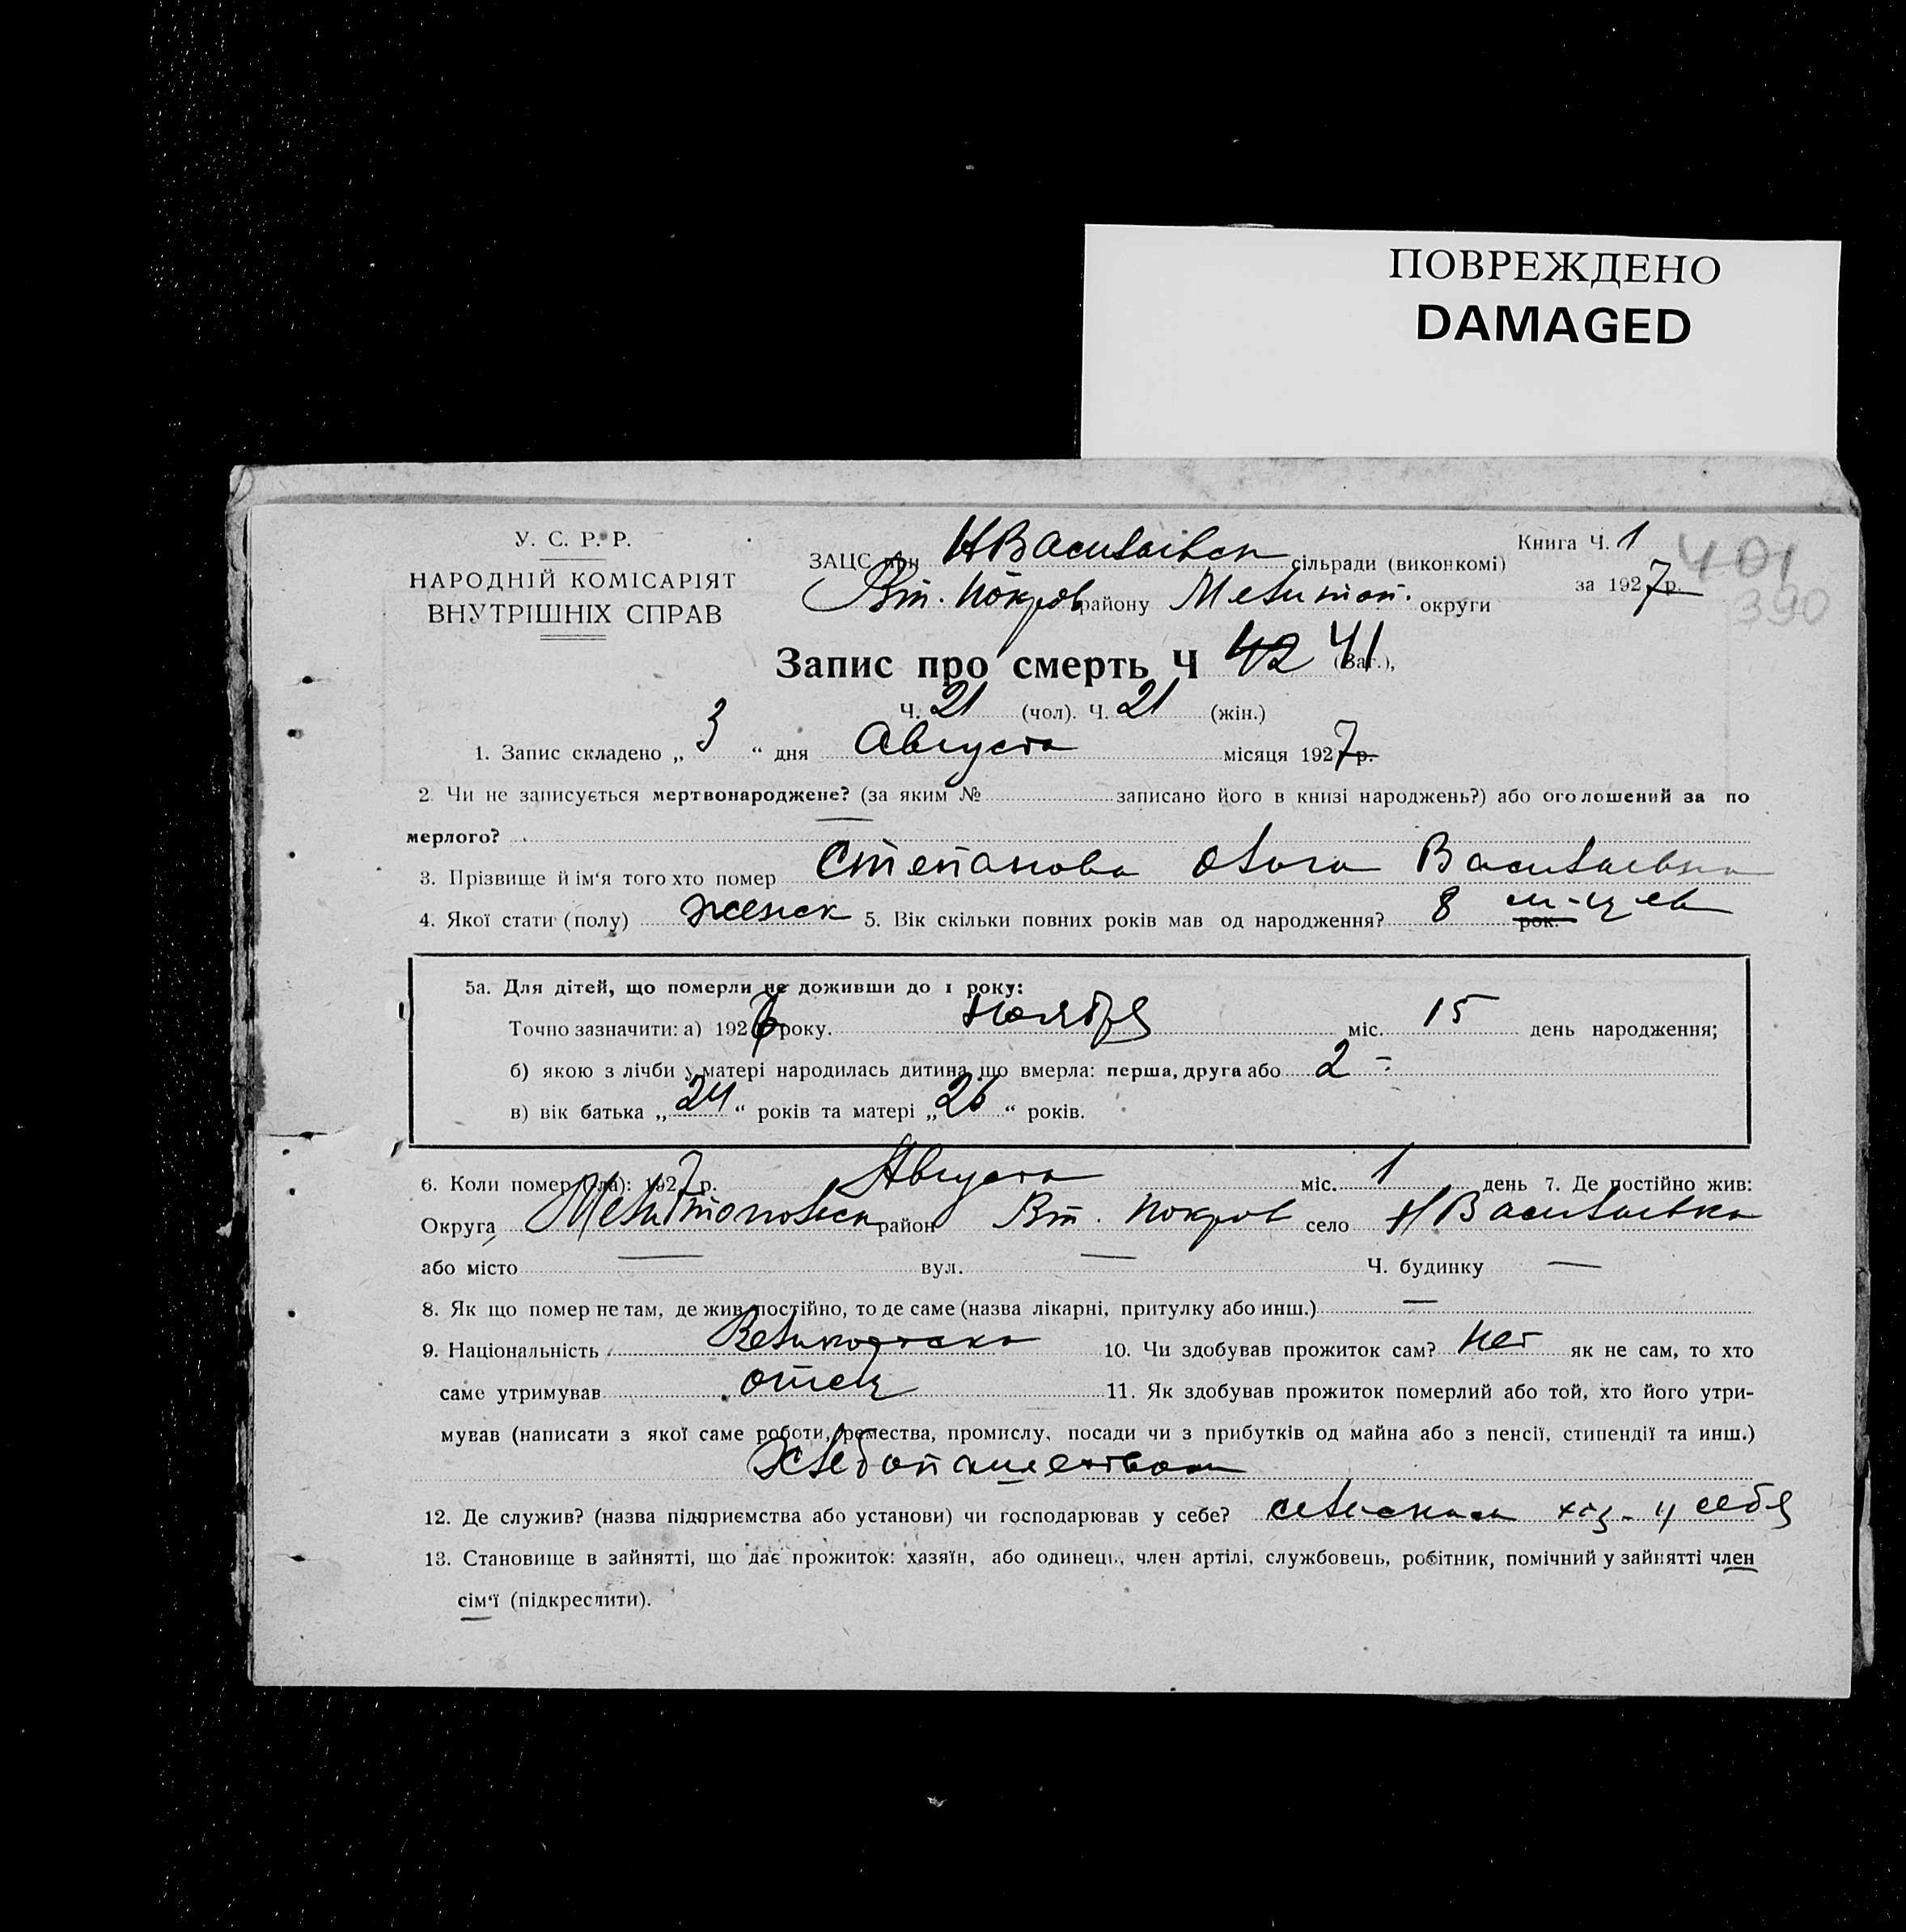 ПОВРЕЖДЕНО
DAMAGED
У. С. Р. Р.
НАРОДНІЙ КОМІСАРІЯТ
ВНУТРІШНІХ СПРАВ
ЗАЦС при НВасильевск сільради (виконкомі)
Вт. Покров району Мелитоп. округи
Книга Ч. 1
за 1927 р.
401
390
Запис про смерть Ч 42 41 (Заг.),
Ч. 21 (чол). Ч. 21 (жін.)
1. Запис складено „ 3 “ дня Августа місяця 1927 р.
2. Чи не записується мертвонароджене? (за яким № записано його в книзі народжень?) або оголошений за по
мерлого?
3. Прізвище й ім‘я того хто помер Степанова Ольга Васильевна
4. Якої стати (полу) женск 5. Вік скільки повних років мав од народження? 8 м-цев рок.
5а. Для дітей, що померли не доживши до 1 року:
Точно зазначити: а) 1926 року. Ноября міс. 15 день народження;
б) якою з лічби у матері народилась дитина що вмерла: перша, друга або 2 -
в) вік батька „ 24 “ років та матері „ 26 “ років.
6. Коли помер (ла): 1927 р. Августа міс. 1 день 7. Де постійно жив:
Округа Мелитопольск район Вт. Покров село НВасильевка
або місто — вул. — Ч. будинку —
8. Як що помер не там, де жив постійно, то де саме (назва лікарні, притулку або инш.) —
9. Національність 10. Чи здобував прожиток сам? Нет як не сам, то хто
саме утримував отец 11. Як здобував прожиток померлий або той, хто його утри-
мував (написати з якої саме роботи, ремества, промислу, посади чи з прибутків од майна або з пенсії, стипендії та инш.)
Хлебопашеством
12. Де служив? (назва підприємства або установи) чи господарював у себе? у себя
13. Становище в зайнятті, що дає прожиток: хазяїн, або одинець, член артілі, службовець, робітник, помічний у зайнятті член
сім‘ї (підкреслити).